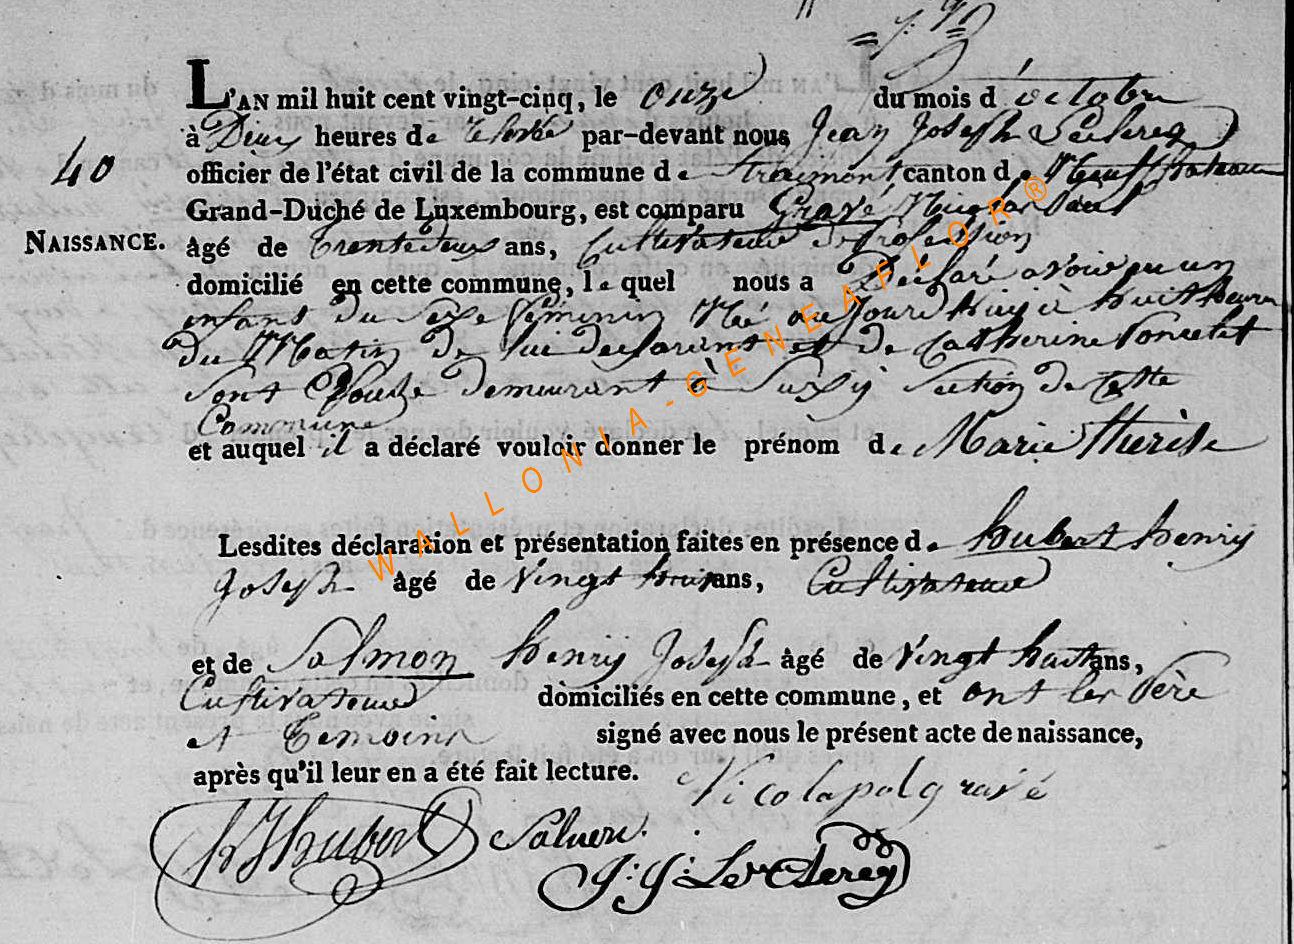 L'AN mil huit cent vingt-cinq, le onze du mois d'octobre
à Deux heures de relevé par-devant nous Jean Joseph Leclercq
40
officier de l'état civil de la commune de Straimont canton de Neufchateau
Grand-Duché de Luxembourg, est comparu Gravé Nicolas Paul
NAISSANCE.
âgé de trente deux ans, Cultivateur de Profession
domicilié en cette commune, lequel nous a Déclaré avoir eu un
enfans du sexe féminin Né aujourd'huy à huit heures
du Matin de lui declarant et de Catherine Poncelet
sont Epouse demeurant à Suxy Section de cette
Commune
et auquel il a déclaré vouloir donner le prénom de Marie thérèse
Lesdites déclaration et présentation faites en présence de hubert henry
Joseph âgé de Vingt huit ans, Cultivateur
et de Salmon henry Joseph âgé de Vingt huit ans,
Cultivateur domiciliés en cette commune, et ont les Père
et Temoins signé avec nous le présent acte de naissance,
après qu'il leur en a été fait lecture. Nicolapolgravé
hJHubert
J: J: Leclercq
WALLONIA-GENEAFLOR®